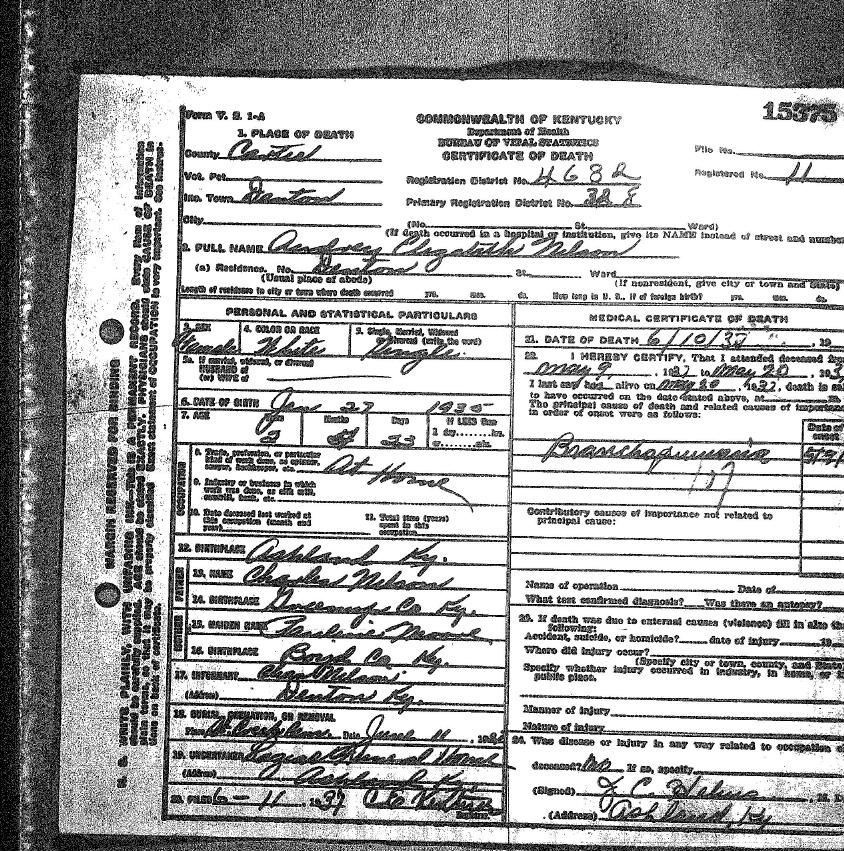 Form V. S. 1-A
15375
COMMONWEALTH OF KENTUCKY
Department of Health
BUREAU OF VITAL STATISTICS
CERTIFICATE OF DEATH
1. PLACE OF DEATH
County Carter
Vot. Pct.
Inc. Town Denton
City
File No.
Registered No. 11
Registration District No. 4682
Primary Registration District No.
(No. St. Ward)
(If death occurred in a hospital or institution, give its NAME instead of street and number
2. FULL NAME Audrey Elizabeth Nelson
(a) Residence. No. Denton St. Ward
(Usual place of abode) (If nonresident, give city or town and State)
Length of residence in city or town where death occurred yrs. mos. ds. How long in U. S., if of foreign birth? yrs. mos. ds.
PERSONAL AND STATISTICAL PARTICULARS
3. SEX Female
4. COLOR OR RACE White
5. Single, Married, Widowed
Divorced (write the word)
Single
5a. If married, widowed, or divorced
HUSBAND of
(or) WIFE of
6. DATE OF BIRTH Jan 27 1935
7. AGE Months Days If LESS than
2 23 1 day hrs.
8. Trade, profession, or particular
kind of work done, as spinner,
sawyer, bookkeeper, etc.
At Home
9. Industry or business in which
work was done, as silk mill,
sawmill, bank, etc.
10. Date deceased last worked at
this occupation (month and
year)
11. Total time (years)
spent in this
occupation
OCCUPATION
12. BIRTHPLACE Ashland Ky.
FATHER
13. NAME Charles Nelson
14. BIRTHPLACE Greenup Co Ky.
MOTHER
15. MAIDEN NAME Pauline Moore
16. BIRTHPLACE Boyd Co Ky.
17. INFORMANT Chas Nelson
(Address) Denton Ky.
18. BURIAL, CREMATION, OR REMOVAL
Place Date June 11, 19
19. UNDERTAKER Funeral Home
(Address) Ashland Ky
20. FILED 6-11, 1937
Registrar.
MEDICAL CERTIFICATE OF DEATH
21. DATE OF DEATH 6/10/37, 19
22. I HEREBY CERTIFY, That I attended deceased from
May 9, 1937 to May 20, 193
I last saw h alive on May 20, 1937, death is said
to have occurred on the date stated above, at
The principal cause of death and related causes of importance
in order of onset were as follows:
Date of
onset
Bronchopneumonia 5/9/
107
Contributory causes of importance not related to
principal cause:
Name of operation Date of
What test confirmed diagnosis? Was there an autopsy?
23. If death was due to external causes (violence) fill in also the
following:
Accident, suicide, or homicide? date of injury 19
Where did injury occur?
(Specify city or town, county, and State)
Specify whether injury occurred in industry, in home, or in
public place.
Manner of injury
Nature of injury
24. Was disease or injury in any way related to occupation of
deceased? no If so, specify
(Signed) , M. D.
(Address) Ashland, Ky
MARGIN RESERVED FOR BINDING
N. B. WRITE PLAINLY, WITH UNFADING INK—THIS IS A PERMANENT RECORD. Every item of information
should be carefully supplied. AGE should be stated EXACTLY. PHYSICIANS should state CAUSE OF DEATH in
plain terms, so that it may be properly classified. Exact statement of OCCUPATION is very important. See instruc-
tions on back of certificate.